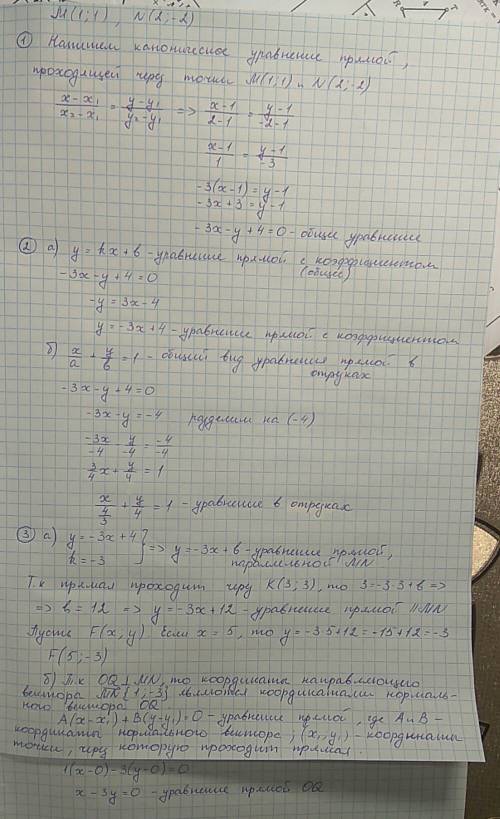 M(1;1), N(2;-2)
① Напишем каноническое уравнение прямой,
проходящей через точки M(1;1) и N(2;-2)
(x-x₁)/(x₂-x₁) = (y-y₁)/(y₂-y₁) => (x-1)/(2-1) = (y-1)/(-2-1)
(x-1)/1 = (y-1)/-3
-3(x-1) = y-1
-3x+3 = y-1
-3x-y+4=0 - общее уравнение
② а) y = kx+b - уравнение прямой с коэффициентом
(общее)
-3x-y+4=0
-y = 3x-4
y = -3x+4 - уравнение прямой с коэффициентом
б) x/a + y/b = 1 - общий вид уравнения прямой в
отрезках
-3x-y+4=0
-3x-y = -4 разделим на (-4)
-3x/-4 - y/-4 = -4/-4
3/4 x + y/4 = 1
x/(4/3) + y/4 = 1 - уравнение в отрезках
③ а) y = -3x+4
k = -3 } => y = -3x+b - уравнение прямой,
параллельной MN
Т.к прямая проходит через K(3;3), то 3=-3·3+b =>
=> b = 12 => y = -3x+12 - уравнение прямой || MN
Пусть F(x,y). Если x = 5, то y = -3·5+12 = -15+12 = -3
F(5;-3)
б) Т.к OQ ⊥ MN, то координаты направляющего
вектора MN{1;-3} являются координатами нормаль-
ного вектора OQ.
A(x-x₁)+B(y-y₁)=0 - уравнение прямой, где A и B -
координаты нормального вектора; (x₁,y₁) - координаты
точки, через которую проходит прямая.
1(x-0)-3(y-0)=0
x-3y=0 - уравнение прямой OQ